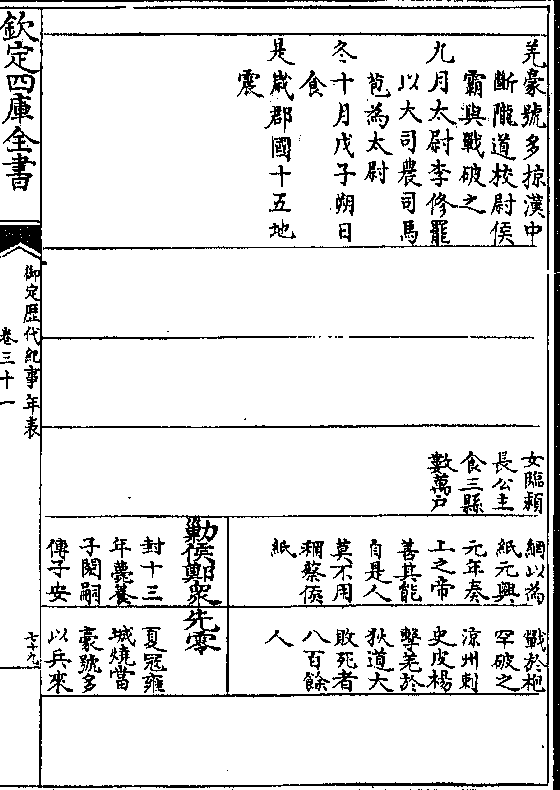 羌豪號多掠漢中
斷隴道校尉侯
霸與戰破之
九月太尉李修罷
以大司農司馬
苞為太尉
冬十月戊子朔日
食
是歲郡國十五地
震
女臨頴
長公主
食三縣
數萬戶
網以為
紙元興
元年奏
上之帝
善其能
自是人
莫不用
稱蔡侯
紙
勦侯鄭衆
封十三
年薨養
子閎嗣
傳子安
戰於枹
罕破之
涼州刺
史皮楊
擊羌於
狄道大
敗死者
八百餘
人
先零
夏冠雍
城燒當
豪號多
以兵來
欽定四庫全書
御定歴代紀事年表
卷三十一
七十九